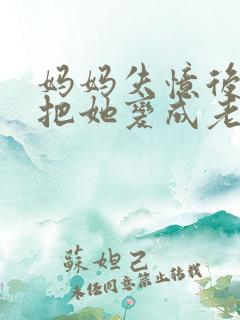 妈妈失憶後
把她變成老
蘇妲己
未经同意禁止转载